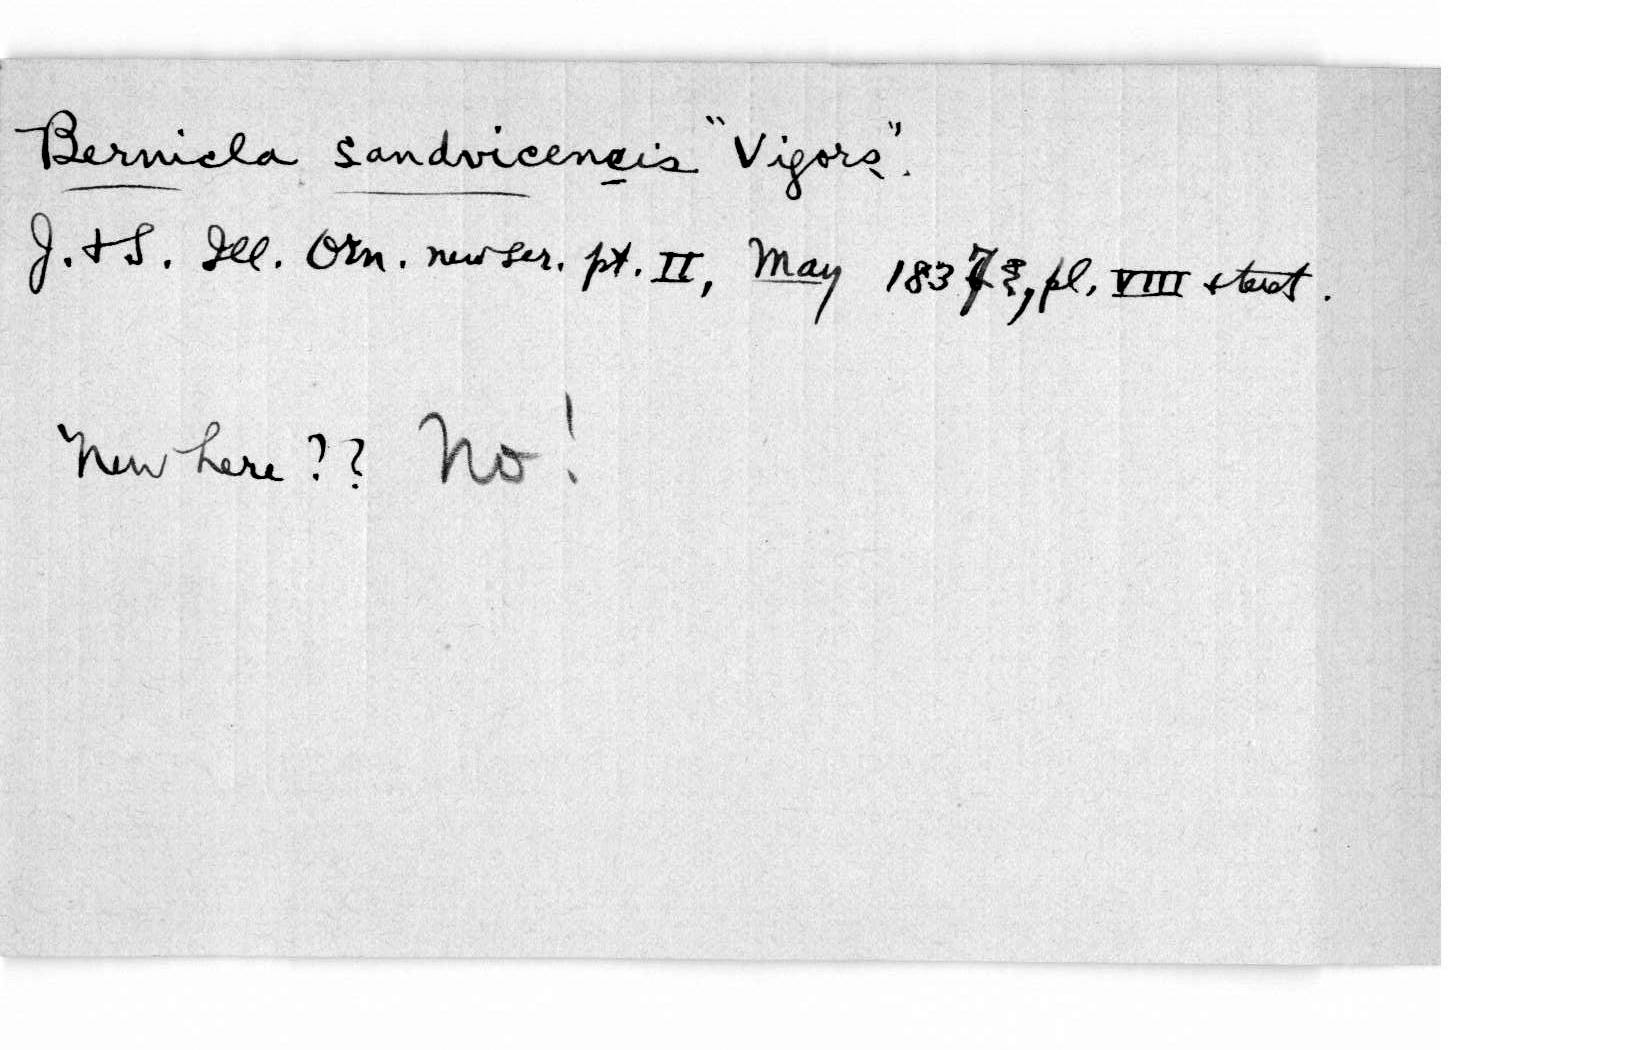 Bernicla sandvicensis "Vigors".
J. & S. Ill. Orn. new ser. pt. II, May 1837, pl. VIII & text.
New here?? No!